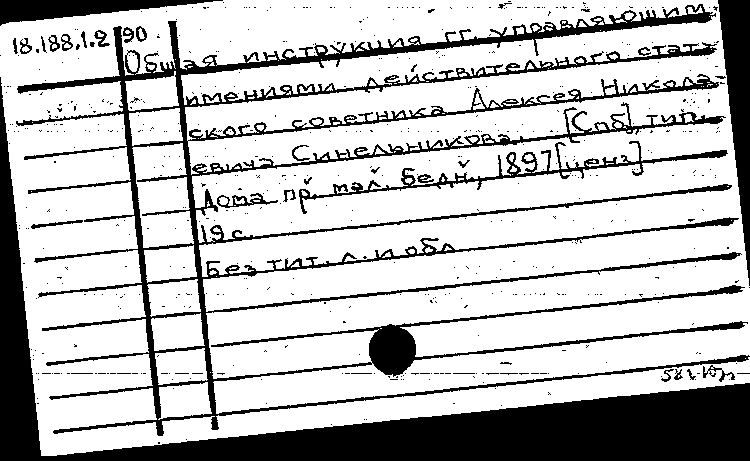 18.188.1.2 90
Общая инструкция гг. управляющим
имениями действительного статс
ского советника Алексея Никола-
евича Синельникова. [Спб], тип.
Дома пр. мал. бедн., 1897 [ценз]
19 с.
Без тит. л. и обл